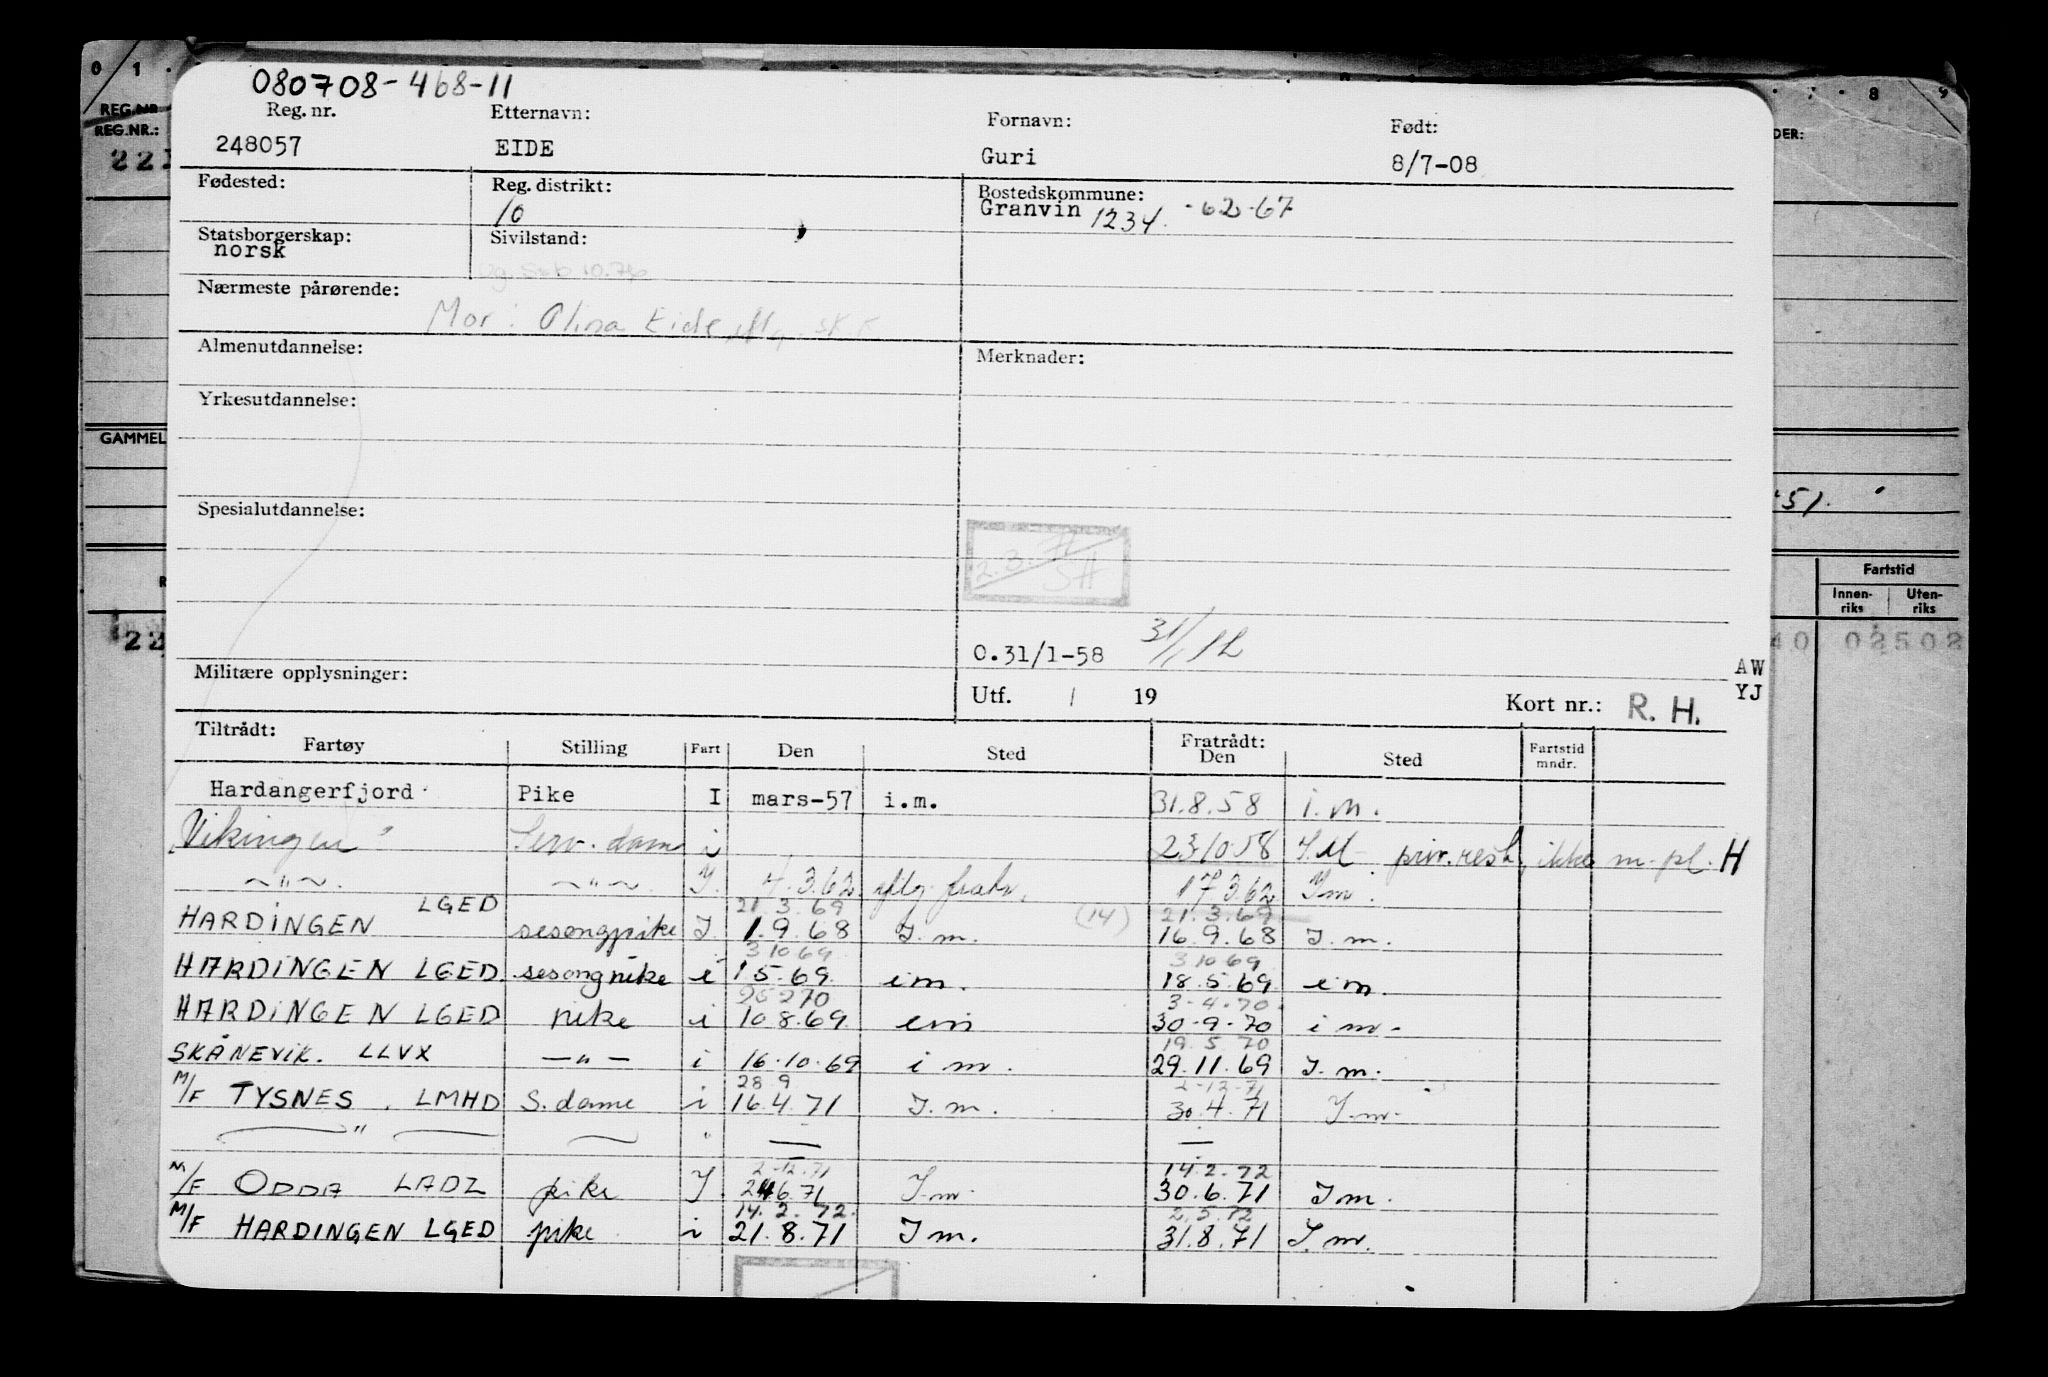 080708-468-11
Reg. nr. Etternavn: Fornavn: Født:
248057 EIDE Guri 8/7-08
Fødested: Reg. distrikt: Bostedskommune:
10 Granvin 1234. -62-67
Statsborgerskap: Sivilstand:
norsk
Nærmeste pårørende:
Mor: Olina Eide
Almenutdannelse: Merknader:
Yrkesutdannelse:
Spesialutdannelse:
O.31/1-58 31/12
Militære opplysninger: Utf. / 19 Kort nr.: R. H.
AW
YJ
Tiltrådt: Fratrådt:
Fartøy Stilling Fart Den Sted Den Sted Fartstid mndr.
Hardangerfjord Pike I mars-57 i.m. 31.8.58 i.m.
"Vikingen" Serv. dame i 23.10.58 I.M priv. resk, ikke m.pl. H
— " — — " — I. 4.3.62 iflg. fratr. 17.3.62 Im.
21.3.69 (14) 21.3.69
HARDINGEN LGED sesongpike I. 1.9.68 I.m. 16.9.68 I.m.
3.10.69 3.10.69
HARDINGEN LGED. sesongpike i 1.5.69. im. 18.5.69 im.
25270 3-4.70.
HARDINGEN LGED pike i 10.8.69. im 30-9-70 im-
19.5.70
SKÅNEVIK. LLVX — " — i 16.10.69 im. 29.11.69 I.m.
28.9 2-12-71
M/F TYSNES. LMHD S. dame i 16.4.71 I.m. 30.4.71 I.m.
— " — — " — —
2-12.71 14.2.72
M/F ODDA LADZ pike I. 24.6.71 I.m. 30.6.71 Im.
14.2.72. 2.5.72
M/F HARDINGEN LGED pike i 21.8.71 Im. 31.8.71 I.m.
0 1 8 9
REG.NR.
REG.NR.:
221
GAMMEL
22
DER:
51.
Fartstid
Innen-riks Uten-riks
40 02502